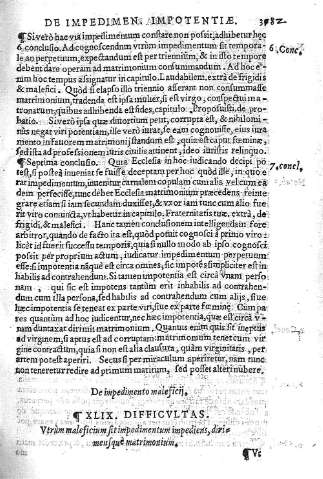 DE IMPEDIMEN. IMPOTENTIÆ.
¶ Si verò hac via impedimentum constare non possit, adhibetur hęc
6. conclusio. Ad cognoscendum vtrùm impedimentum sit tempora-
le an perpetuum, expectandum est per triennium, & in isto tempore
debent dare operam ad matrimonium consummandum. Ad hoc e-
nim hoc tempus assignatur in capitulo. Laudabilem. extrà de frigidis
& malefici. Quòd si elapso illo triennio asserant non consummasse
matrimonium, tradenda est ipsa mulier, si est virgo, conspectui ma-
tronarum, quibus adhibenda est fides, capitulo. Proposuisti, de pro-
batio. Si verò ipsa quæ diuortium petit, corrupta est, & nihilomi-
nus negat viri potentiam, ille verò iurat, se eam cognouisse, eius iura-
mento in fauorem matrimonij standum est, quia est caput fœminæ,
sed ista ad professionem iuris ciuilis attinent, ideo iuristis relinquo.
6. Conc.
¶ Septima conclusio. Quia Ecclesia in hoc iudicando decipi po
test, si postea inueniat se fuisse deceptam per hoc quòd ille, in quo e-
rat impedimentum, inuenitur carnalem copulam cum alia vel cum ea
dem perfecisse, tunc debet Ecclesia matrimonium præcedens reinte-
grare etiam si iam secundam duxisset, & vxor iam tunc cum alio fue-
rit viro coniuncta, vt habetur in capitulo. Fraternitatis tuæ. extrà, de
frigidi, & malefici. Hanc tamen conclusionem intelligendam fore
arbitror, quando de facto ita est, quòd potuit cognosci à primo viro:
licèt id fuerit successu temporis, quia si nullo modo ab ipso cognosci
possit per proprium actum, iudicatur impedimentum perpetuum
esse: si impotentia
7. concl.
cum illa persona, sed habilis ad contrahendum cum alijs, siue
hæc impotentia se teneat ex parte viri, siue ex parte fœminæ. Cum pa-
res quantùm ad hoc iudicentur, nec hæc impotentia, quæ est circa v-
nam duntaxat dirimit matrimonium. Quamuis enim quis sit ineptus
ad virginem, si aptus est ad corruptam: matrimonium tenet cum vir
gine contractum, quia si non est alia clausura, quàm virginitatis, per
artem potest aperiri. Secus si per miraculum aperiretur, nam tunc
non teneretur redire ad primum maritum, sed posset alteri nubere.
De impedimento maleficij.
¶ XLIX. DIFFICVLTAS.
Vtrùm maleficium sit impedimentum impediens, diri-
mensquè matrimonium.